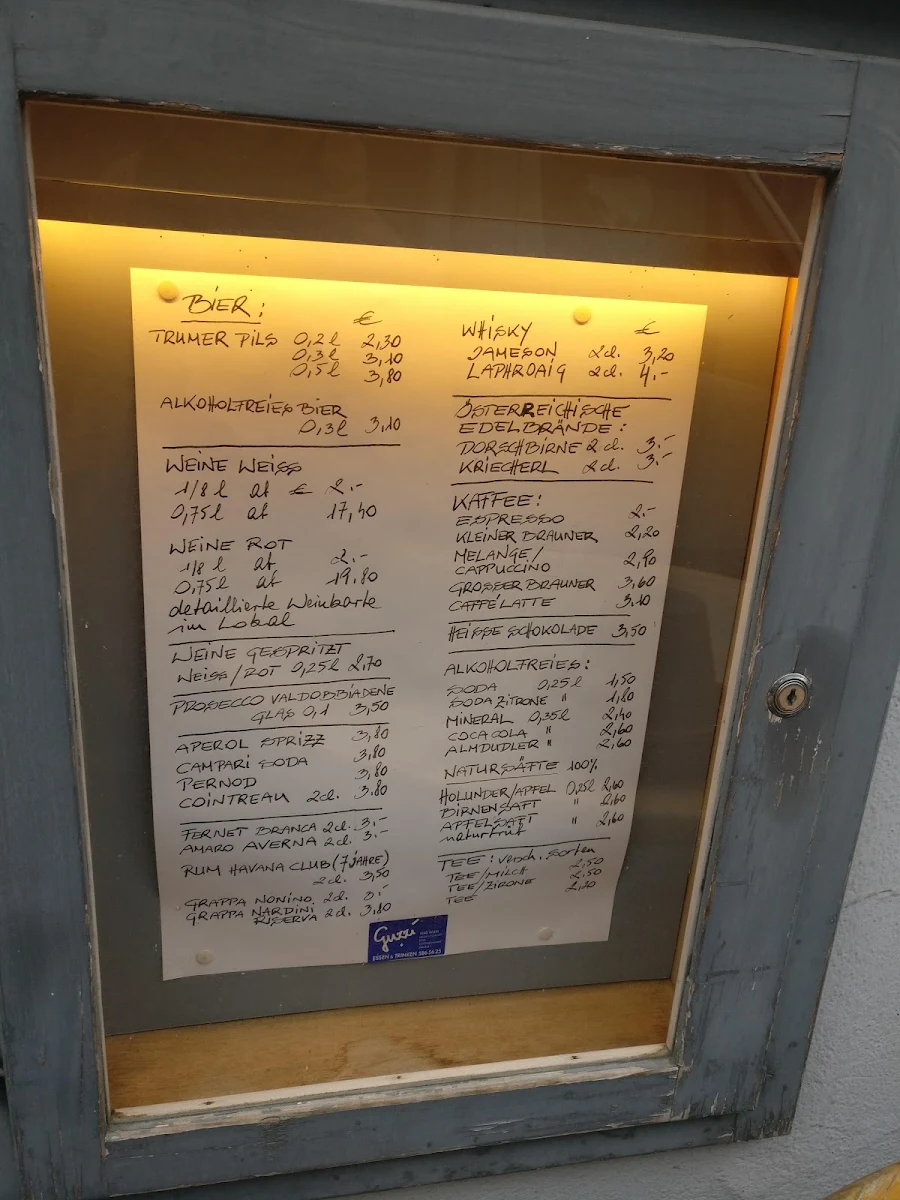 BIER:
€
TRUMER PILS 0,2l 2,30
0,3l 3,10
0,5l 3,80
ALKOHOLFREIES BIER
0,3l 3,10
WEINE WEISS
1/8 l ab € 2.-
0,75l ab 17,40
WEINE ROT
1/8 l ab 2.-
0,75l ab 19,80
detaillierte Weinkarte
im Lokal
WEINE GESPRITZT
WEISS/ROT 0,25l 2,70
PROSECCO VALDOBBIADENE
GLAS 0,1 3,50
APEROL SPRIZZ 3,80
CAMPARI SODA 3,80
PERNOD 3,80
COINTREAU 2cl. 3.80
FERNET BRANCA 2cl. 3.-
AMARO AVERNA 2cl. 3.-
RUM HAVANA CLUB (7 JAHRE)
2cl. 3,50
GRAPPA NONINO 2cl. 3.-
GRAPPA NARDINI 2cl. 3,80
RISERVA
WHISKY €
JAMESON 2cl. 3,20
LAPHROAIG 2cl. 4.-
ÖSTERREICHISCHE
EDELBRÄNDE:
DORSCHBIRNE 2cl. 3.-
KRIECHERL 2cl. 3.-
KAFFEE:
ESPRESSO 2.-
KLEINER BRAUNER 2,20
MELANGE/
CAPPUCCINO 2,90
GROSSER BRAUNER 3,60
CAFFÉ LATTE 3,10
HEISSE SCHOKOLADE 3,50
ALKOHOLFREIES:
SODA 0,25l 1,50
SODA ZITRONE " 1,80
MINERAL 0,35l 2,40
COCA COLA " 2,60
ALMDUDLER " 2,60
NATURSÄFTE 100%
HOLUNDER/APFEL 0,25l 2,60
BIRNENSAFT " 2,60
APFELSAFT " 2,60
naturtrüb
TEE: versch. Sorten
TEE/MILCH 2,50
TEE/ZIRONE 2.50
TEE 2,20
Gurri
ESSEN & TRINKEN